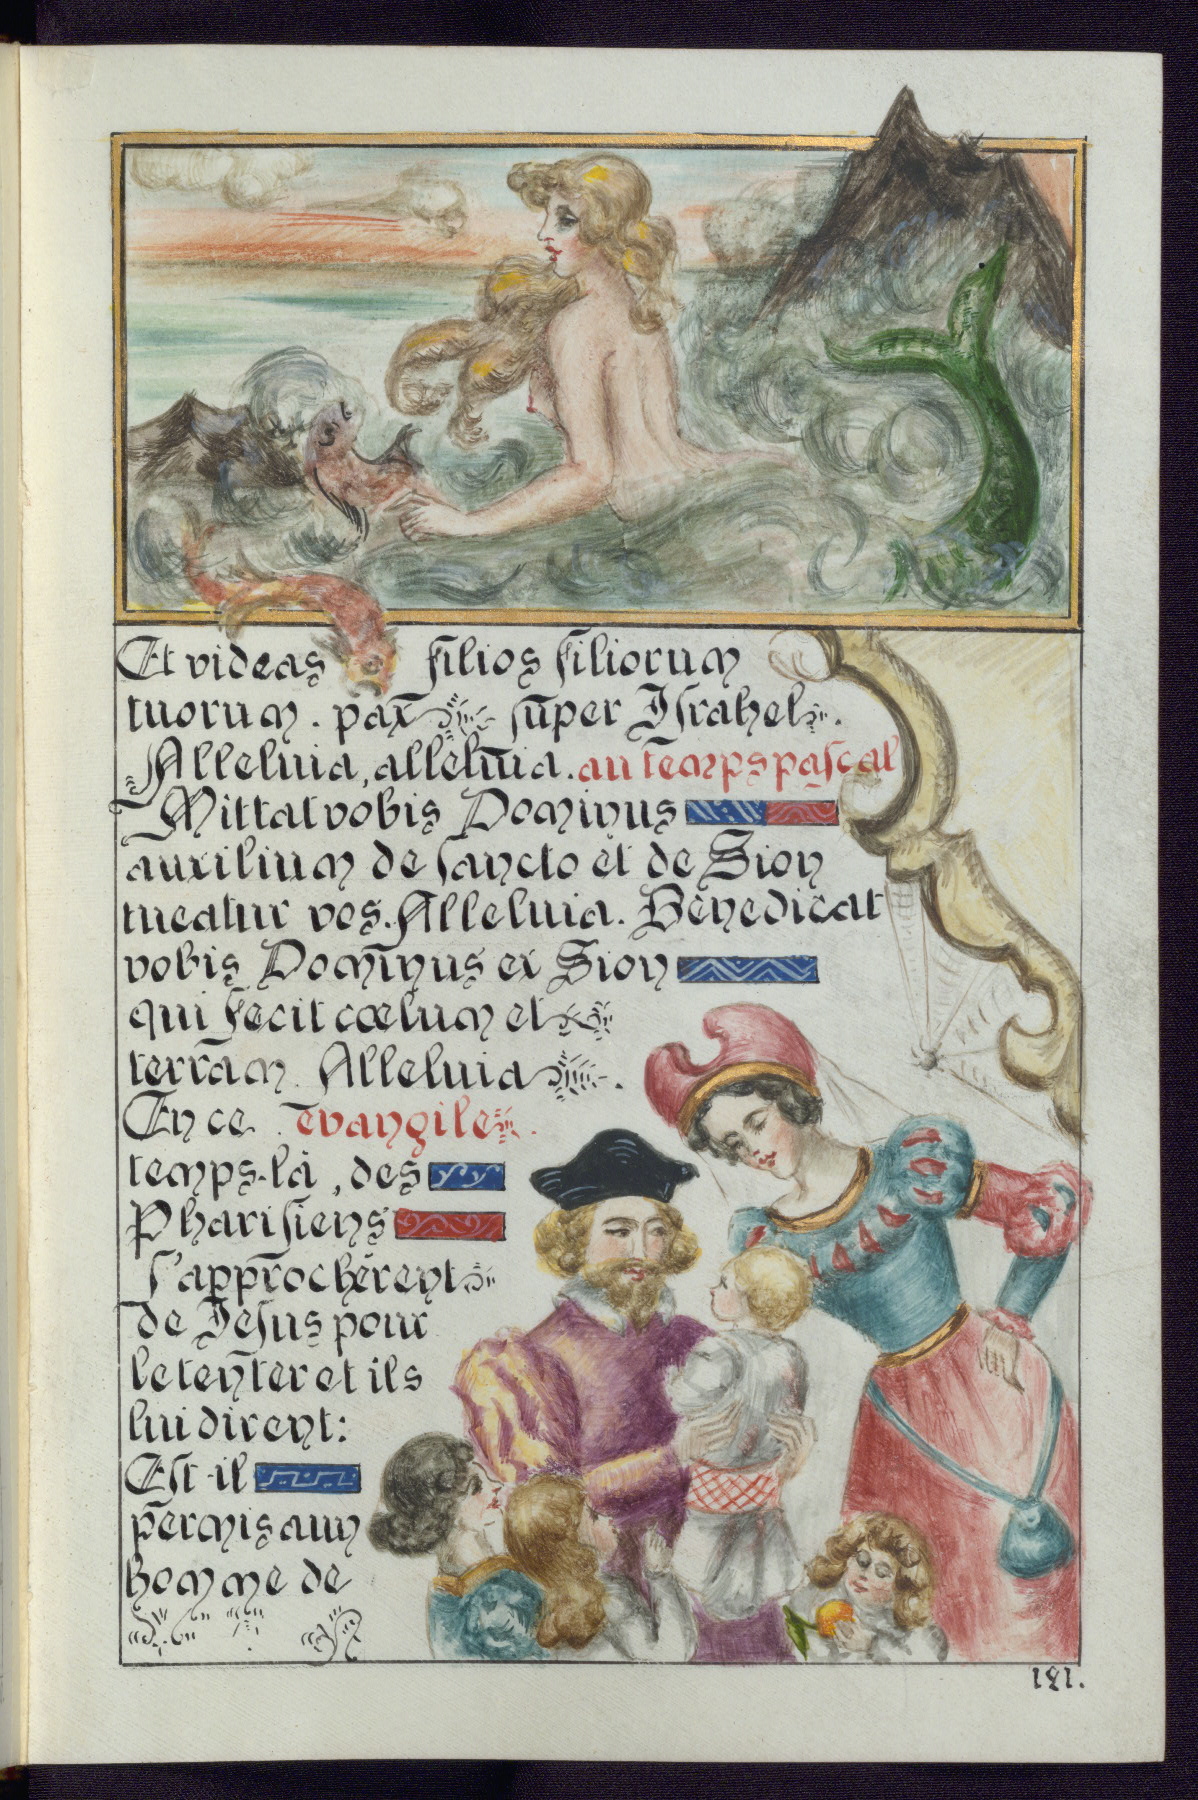 Et videas filios filiorum
tuorum. pax super Iſrahel.
Alleluia, alleluia. au temps paſcal
Mittat vobis Dominus
auxilium de ſancto et de Sion
tueatur vos. Alleluia. Benedicat
vobis Dominus ex Sion
qui fecit cœlum et
terram. Alleluia.
En ce évangile.
temps-là, des
Phariſiens
ſ'approchèrent
de Jeſus pour
le tenter et ils
lui dirent:
Eſt-il
permis a un
homme de
121.